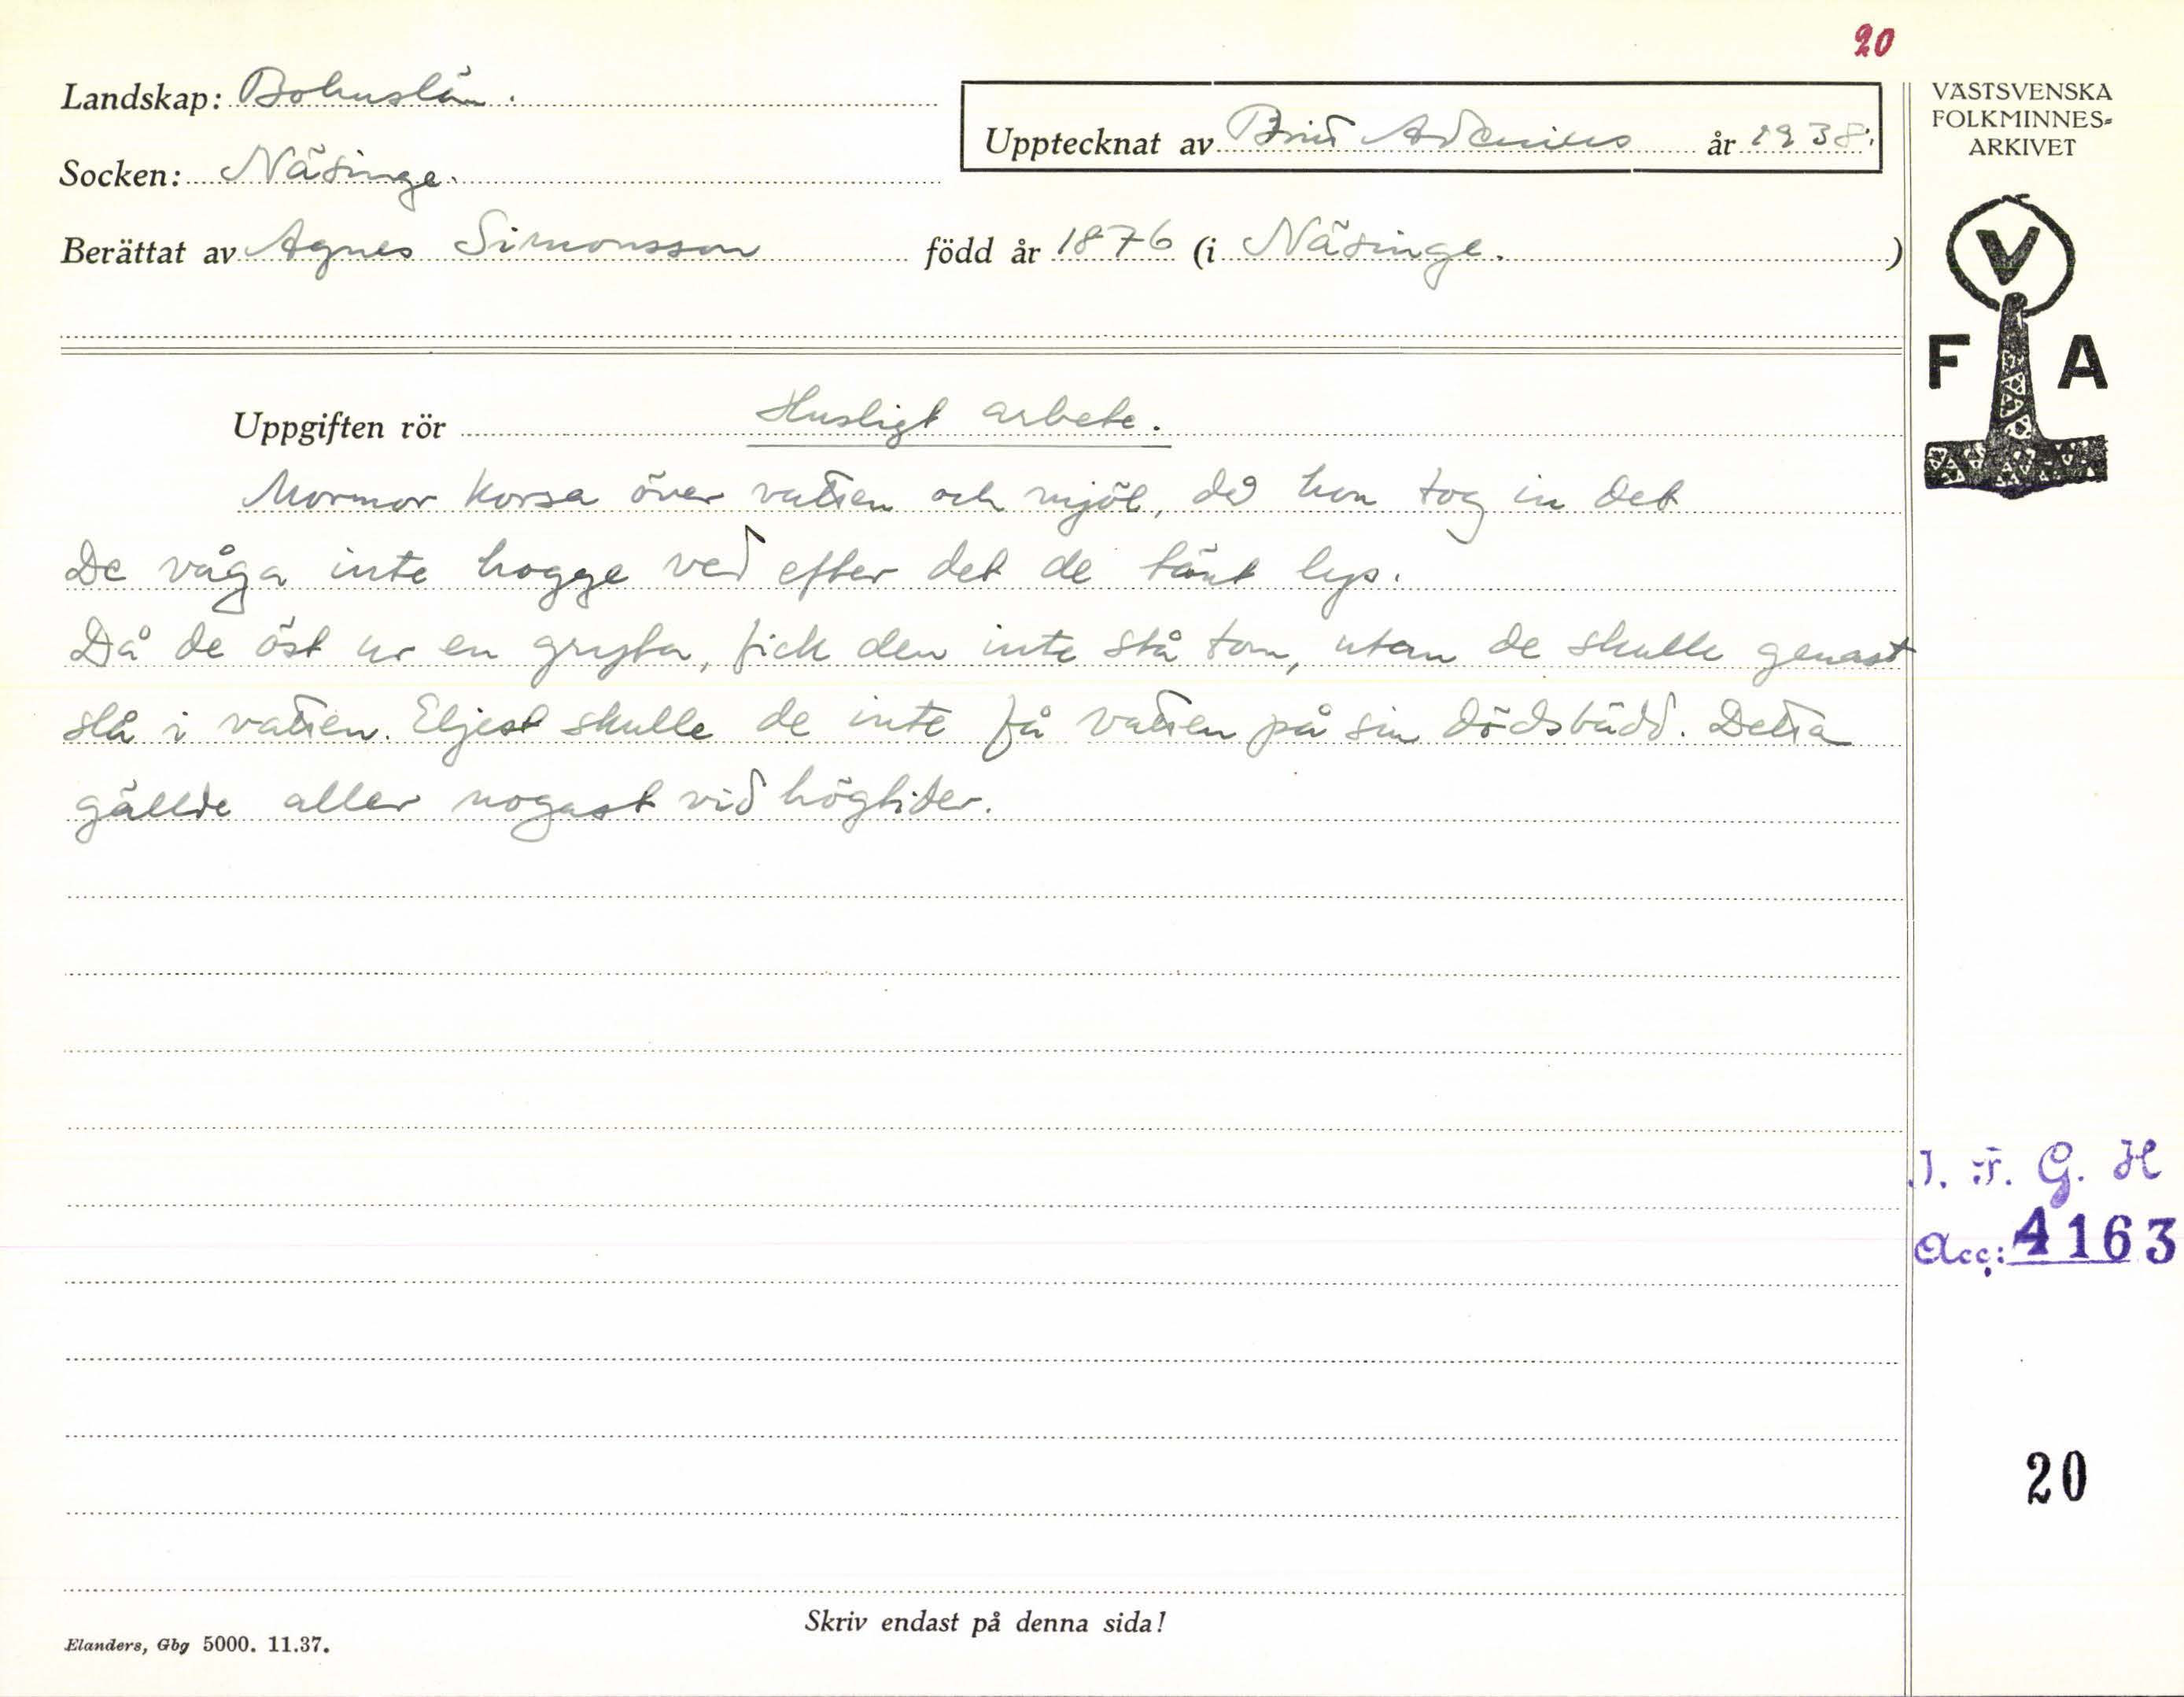 20
Landskap: Bohuslän.
Upptecknat av Britt Adenius år 1938.
VÄSTSVENSKA
FOLKMINNES-
ARKIVET
Socken: Näsinge.
Berättat av Agnes Simonsson född år 1876 (i Näsinge.)
V
F A
Uppgiften rör Husligt arbete.
Mormor korsa över vatten och mjöl, då hon tog in det
De våga inte hogge ved efter det de tänt lys.
Då de öst ur en gryta, fick den inte stå tom, utan de skulle genast
slå i vatten. Eljest skulle de inte få vatten på sin dödsbädd. Detta
gällde aller nogast vid högtider.
I. F. G. H
Acc: 4163
20
Skriv endast på denna sida!
Elanders, Gbg 5000. 11.37.